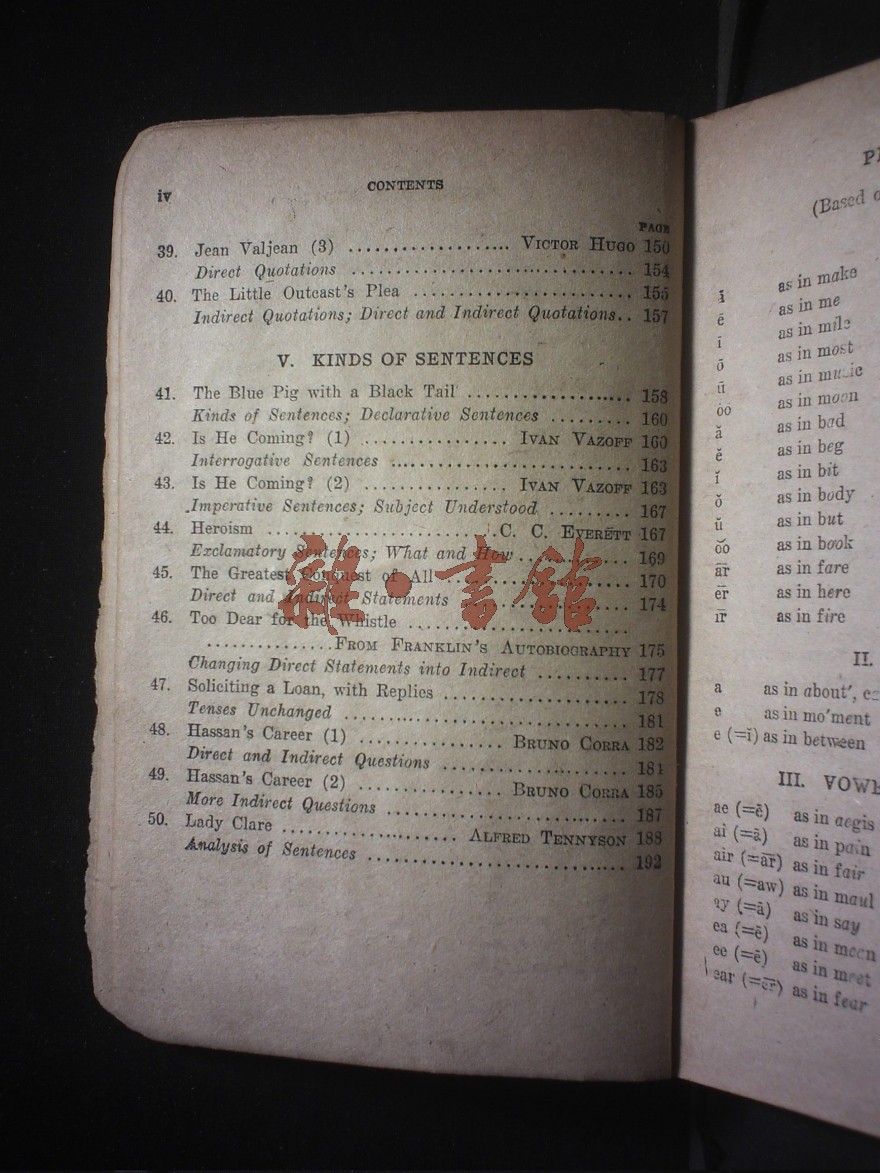 iv
CONTENTS
PAGE
39. Jean Valjean (3) .................. VICTOR HUGO 150
Direct Quotations ............................. 154
40. The Little Outcast's Plea ........................ 155
Indirect Quotations; Direct and Indirect Quotations.. 157
V. KINDS OF SENTENCES
41. The Blue Pig with a Black Tail .................. 158
Kinds of Sentences; Declarative Sentences ......... 160
42. Is He Coming? (1) ................ IVAN VAZOFF 160
Interrogative Sentences .......................... 163
43. Is He Coming? (2) ................ IVAN VAZOFF 163
Imperative Sentences; Subject Understood ......... 167
44. Heroism ........................ C. C. EVERETT 167
Exclamatory Sentences; What and How ............ 169
45. The Greatest Conquest of All .................... 170
Direct and Indirect Statements .................. 174
46. Too Dear for the Whistle ........................
...............FROM FRANKLIN'S AUTOBIOGRAPHY 175
Changing Direct Statements into Indirect .......... 177
47. Soliciting a Loan, with Replies .................... 178
Tenses Unchanged ............................... 181
48. Hassan's Career (1) ................ BRUNO CORRA 182
Direct and Indirect Questions .................... 184
49. Hassan's Career (2) ................ BRUNO CORRA 185
More Indirect Questions .......................... 187
50. Lady Clare ...................... ALFRED TENNYSON 188
Analysis of Sentences ............................ 192
雜·書館
(Based
as in make
ē as in me
ī as in mile
ō as in most
ū as in music
o͞o as in moon
ă as in bad
ĕ as in beg
ĭ as in bit
ŏ as in body
ŭ as in but
o͝o as in book
ār as in fare
ēr as in here
īr as in fire
II.
a as in about',
e as in mo'ment
e (=ĭ) as in between
III.
ae (=ē) as in aegis
ai (=ā) as in pain
air (=ār) as in fair
au (=aw) as in maul
ay (=ā) as in say
ea (=ē) as in mean
ee (=ē) as in meet
ear (=ēr) as in fear